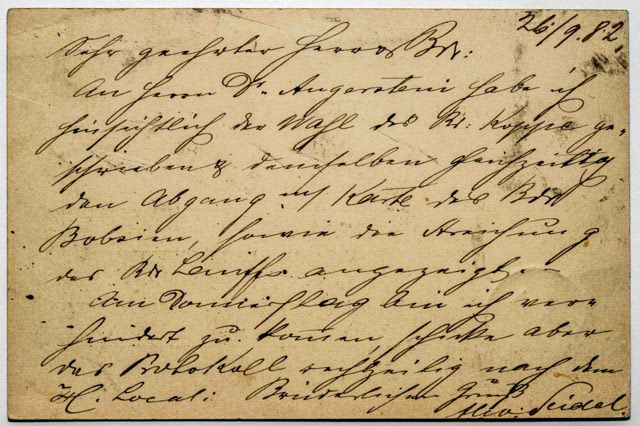 26/9.82.
Sehr geehrter Herr & Br:
An Herrn Dr. Angerstein habe ich
hinsichtlich der Wahl des Br: Koppe ge-
schrieben & demselben gleichzeitig
den Abgang auf Karte des Brs
Bobsien, sowie die Streichung
des Br angezeigt. -
Am Donnerstag bin ich ver-
hindert zu kommen, schicke aber
das Protokoll rechtzeitig nach dem
Local: Brüderlichen Gruß
Seidel.